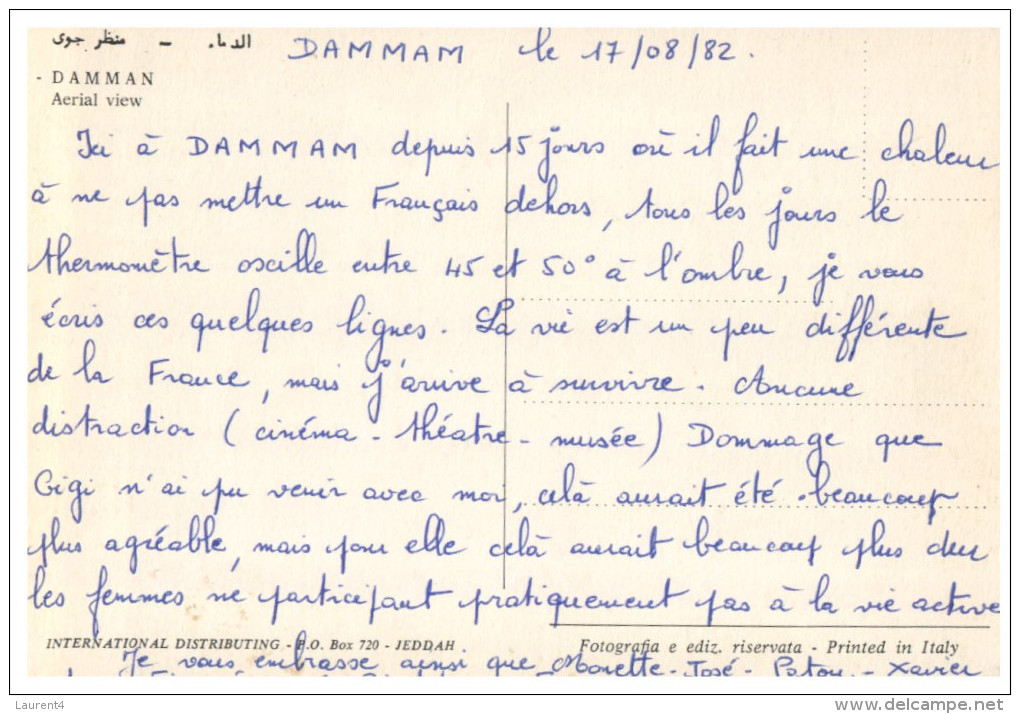 الدمام - منظر جوى
DAMMAM le 17/08/82.
- DAMMAN
Aerial view
Ici à DAMMAM depuis 15 jours où il fait une chaleur
à ne pas mettre un Français dehors, tous les jours le
thermomètre oscille entre 45 et 50° à l'ombre, je vous
écris ces quelques lignes. La vie est un peu différente
de la France, mais j'arrive à survivre. Aucune
distraction (cinéma - théatre - musée) Dommage que
Gigi n'ai pu venir avec moi, celà aurait été beaucoup
plus agréable, mais pour elle celà aurait beaucoup plus dur
les femmes ne participant pratiquement pas à la vie active
INTERNATIONAL DISTRIBUTING - P.O. Box 720 - JEDDAH
Fotografia e ediz. riservata - Printed in Italy
Je vous embrasse ainsi que Monette - José - Patou - Xavier
Laurent4
delcampe.net